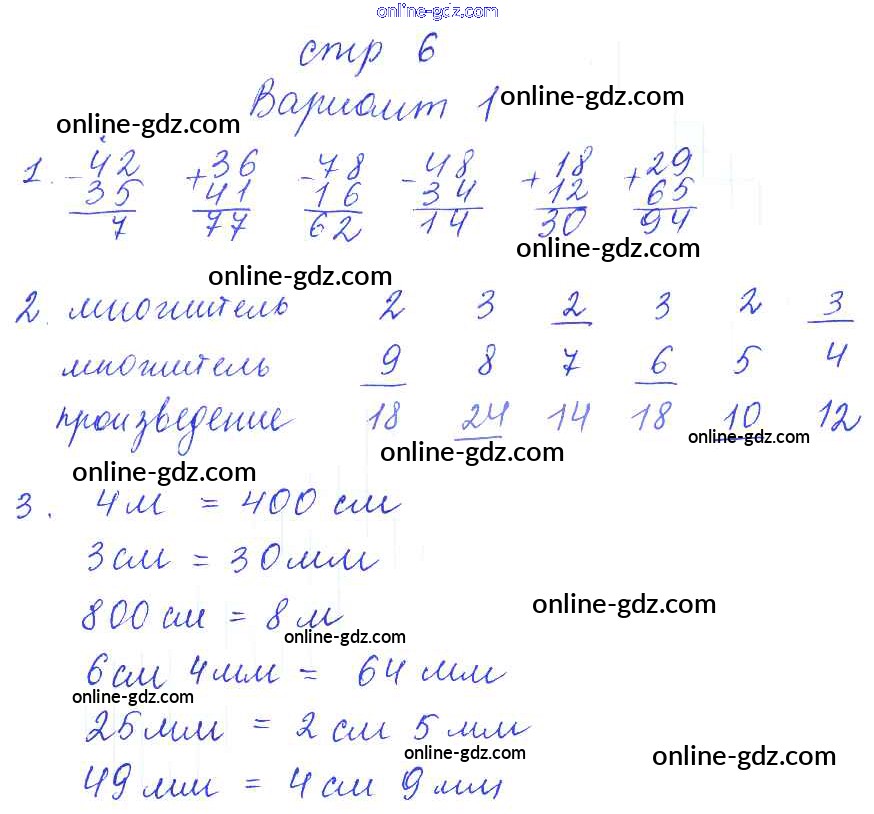 online-gdz.com
стр 6
Вариант 1 online-gdz.com
online-gdz.com
1. -42 +36 -78 -48 +18 +29
35 41 16 34 12 65
7 77 62 14 30 94
online-gdz.com
online-gdz.com
2. множитель 2 3 2 3 2 3
множитель 9 8 7 6 5 4
произведение 18 24 14 18 10 12
online-gdz.com
online-gdz.com
online-gdz.com
3. 4 м = 400 см
3 см = 30 мм
800 см = 8 м
online-gdz.com
online-gdz.com
6 см 4 мм = 64 мм
online-gdz.com
25 мм = 2 см 5 мм
online-gdz.com
online-gdz.com
49 мм = 4 см 9 мм